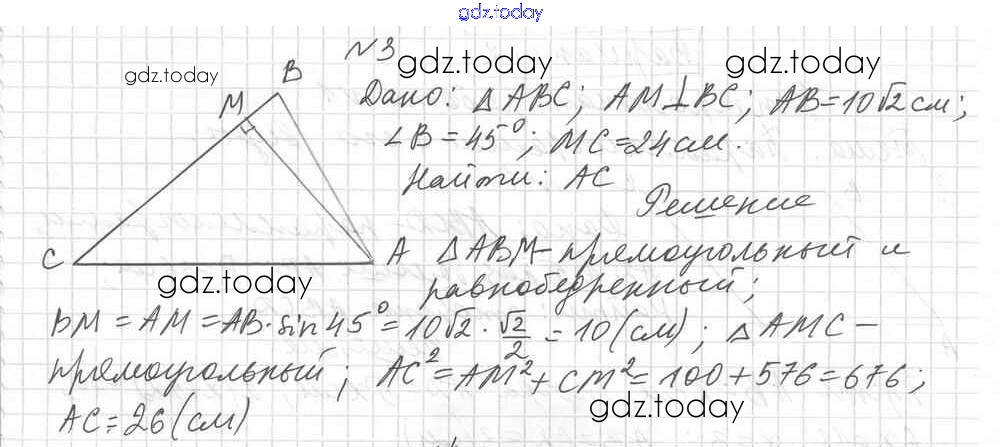 gdz.today
N3
gdz.today gdz.today
gdz.today
B
M
Дано: △ABC; AM⊥BC; AB=10√2 см;
∠B=45°; MC=24 см.
Найти: AC
Решение
C
A △ABM - прямоугольный и
равнобедренный;
gdz.today
BM = AM = AB·sin45° = 10√2 · √2/2 = 10 (см); △AMC –
прямоугольный; AC² = AM² + CM² = 100 + 576 = 676;
gdz.today
AC = 26 (см)